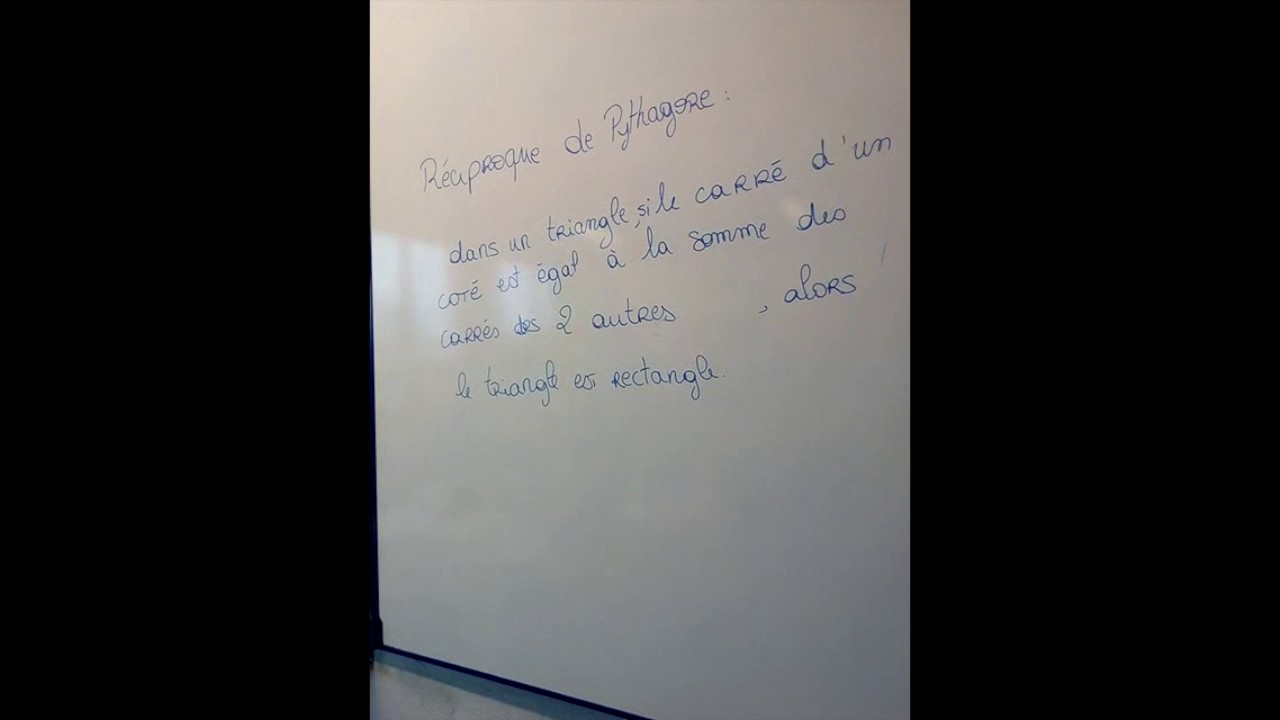 Réciproque de Pythagore :
dans un triangle, si le carré d'un
coté est égal à la somme des
carrés des 2 autres , alors
le triangle est rectangle.